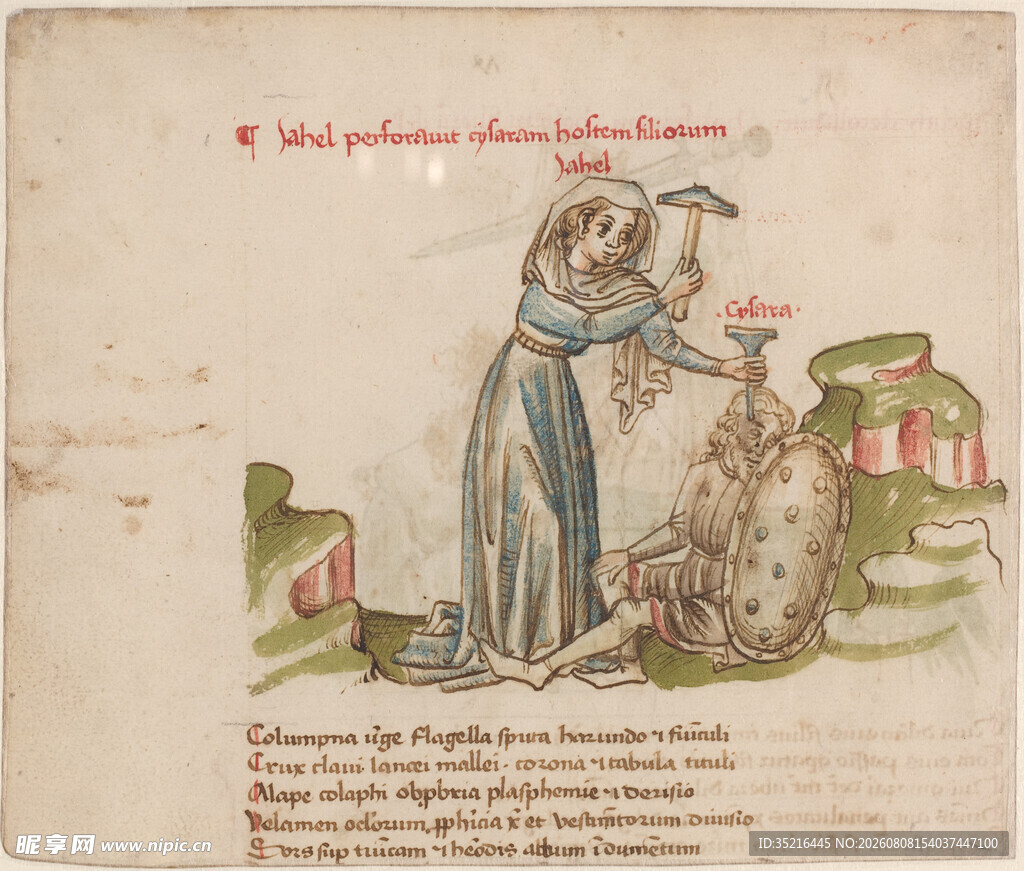 ¶ Jahel perforauit cysaram hostem filiorum
Jahel
· Cysara ·
Columpna uirge flagella sputa harundo ⁊ funiculi
Crux claui lancei mallei · corona ⁊ tabula tituli
Alape colaphi obprobria plasphemie ⁊ derisio
Velamen oculorum xp̄i et vestimentorum diuisio
Sors sup tunicam ⁊ herodis album indumentum
昵享网 www.nipic.cn
ID:35216445 NO:20260808154037447100